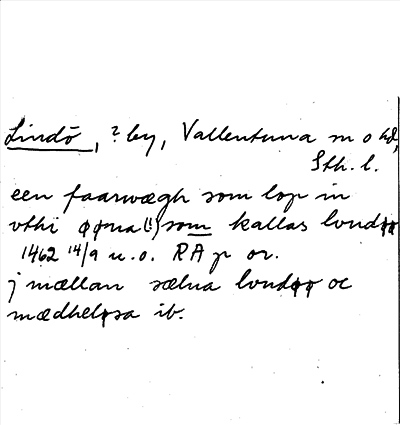 Lindö, ? by, Vallentuna sn o hd,
Sth. l.
een faarwægh som lop in
vthi øøna (!) som kallas londøø
1462 14/9 u. o. RA p or.
j mællan sælna londøø oc
mædheløsa ib.